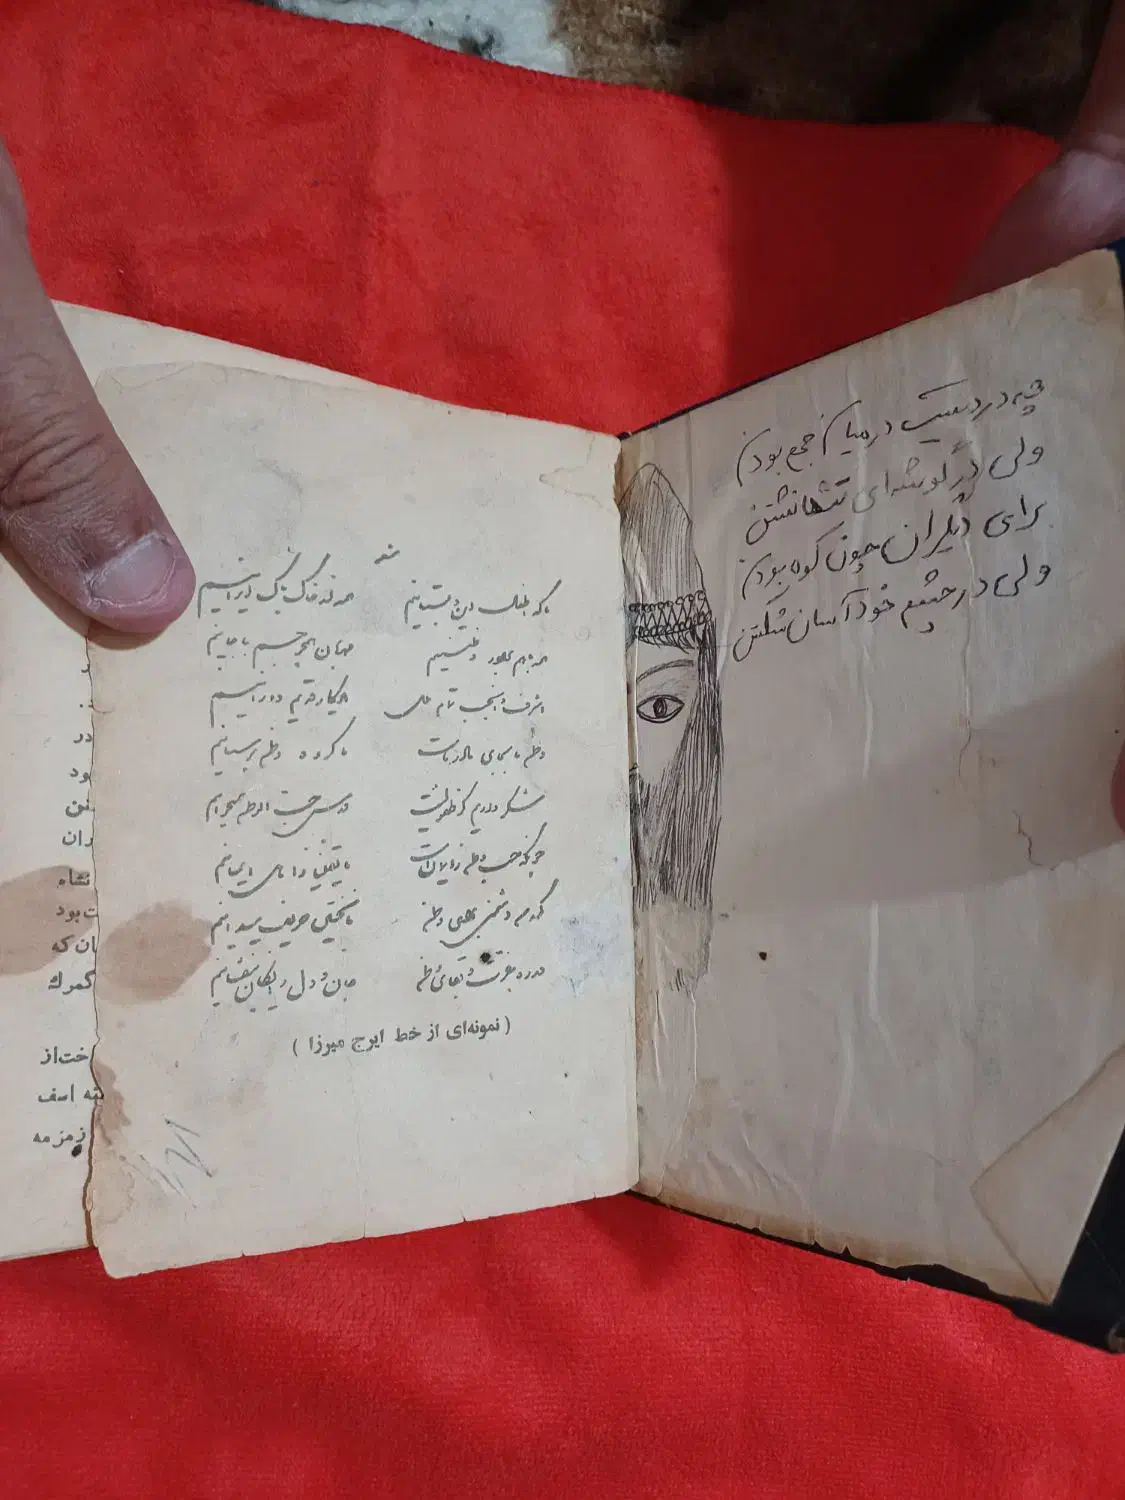 چه دردیست درمیان جمع بودن
ولی در گوشه‌ای تنها نشستن
برای دیگران چون کوه بودن
ولی در چشم خود آسان شکستن
ما که اطفال این دبستانیم همه از خاک پاک ایرانیم
همه باهم برادر وطنیم مهربان همچو جسم با جانیم
اشرف و انجب تمام ملل یادگار قدیم دورانیم
وطن ما بجای مادر ماست ما گروه وطن پرستانیم
شکر داریم کز طفولیت درس حب الوطن همیخوانیم
چونکه حب وطن ز ایمانست ما یقیناً ز اهل ایمانیم
گر رسد دشمنی برای وطن
در ره عزت و بقای وطن جان و دل رایگان بیفشانیم
(نمونه‌ای از خط ایرج میرزا)
در
ود
ران
نشاه
ت‌بود
ان که
گمرك
خت‌از
ته اسف
زمزمه